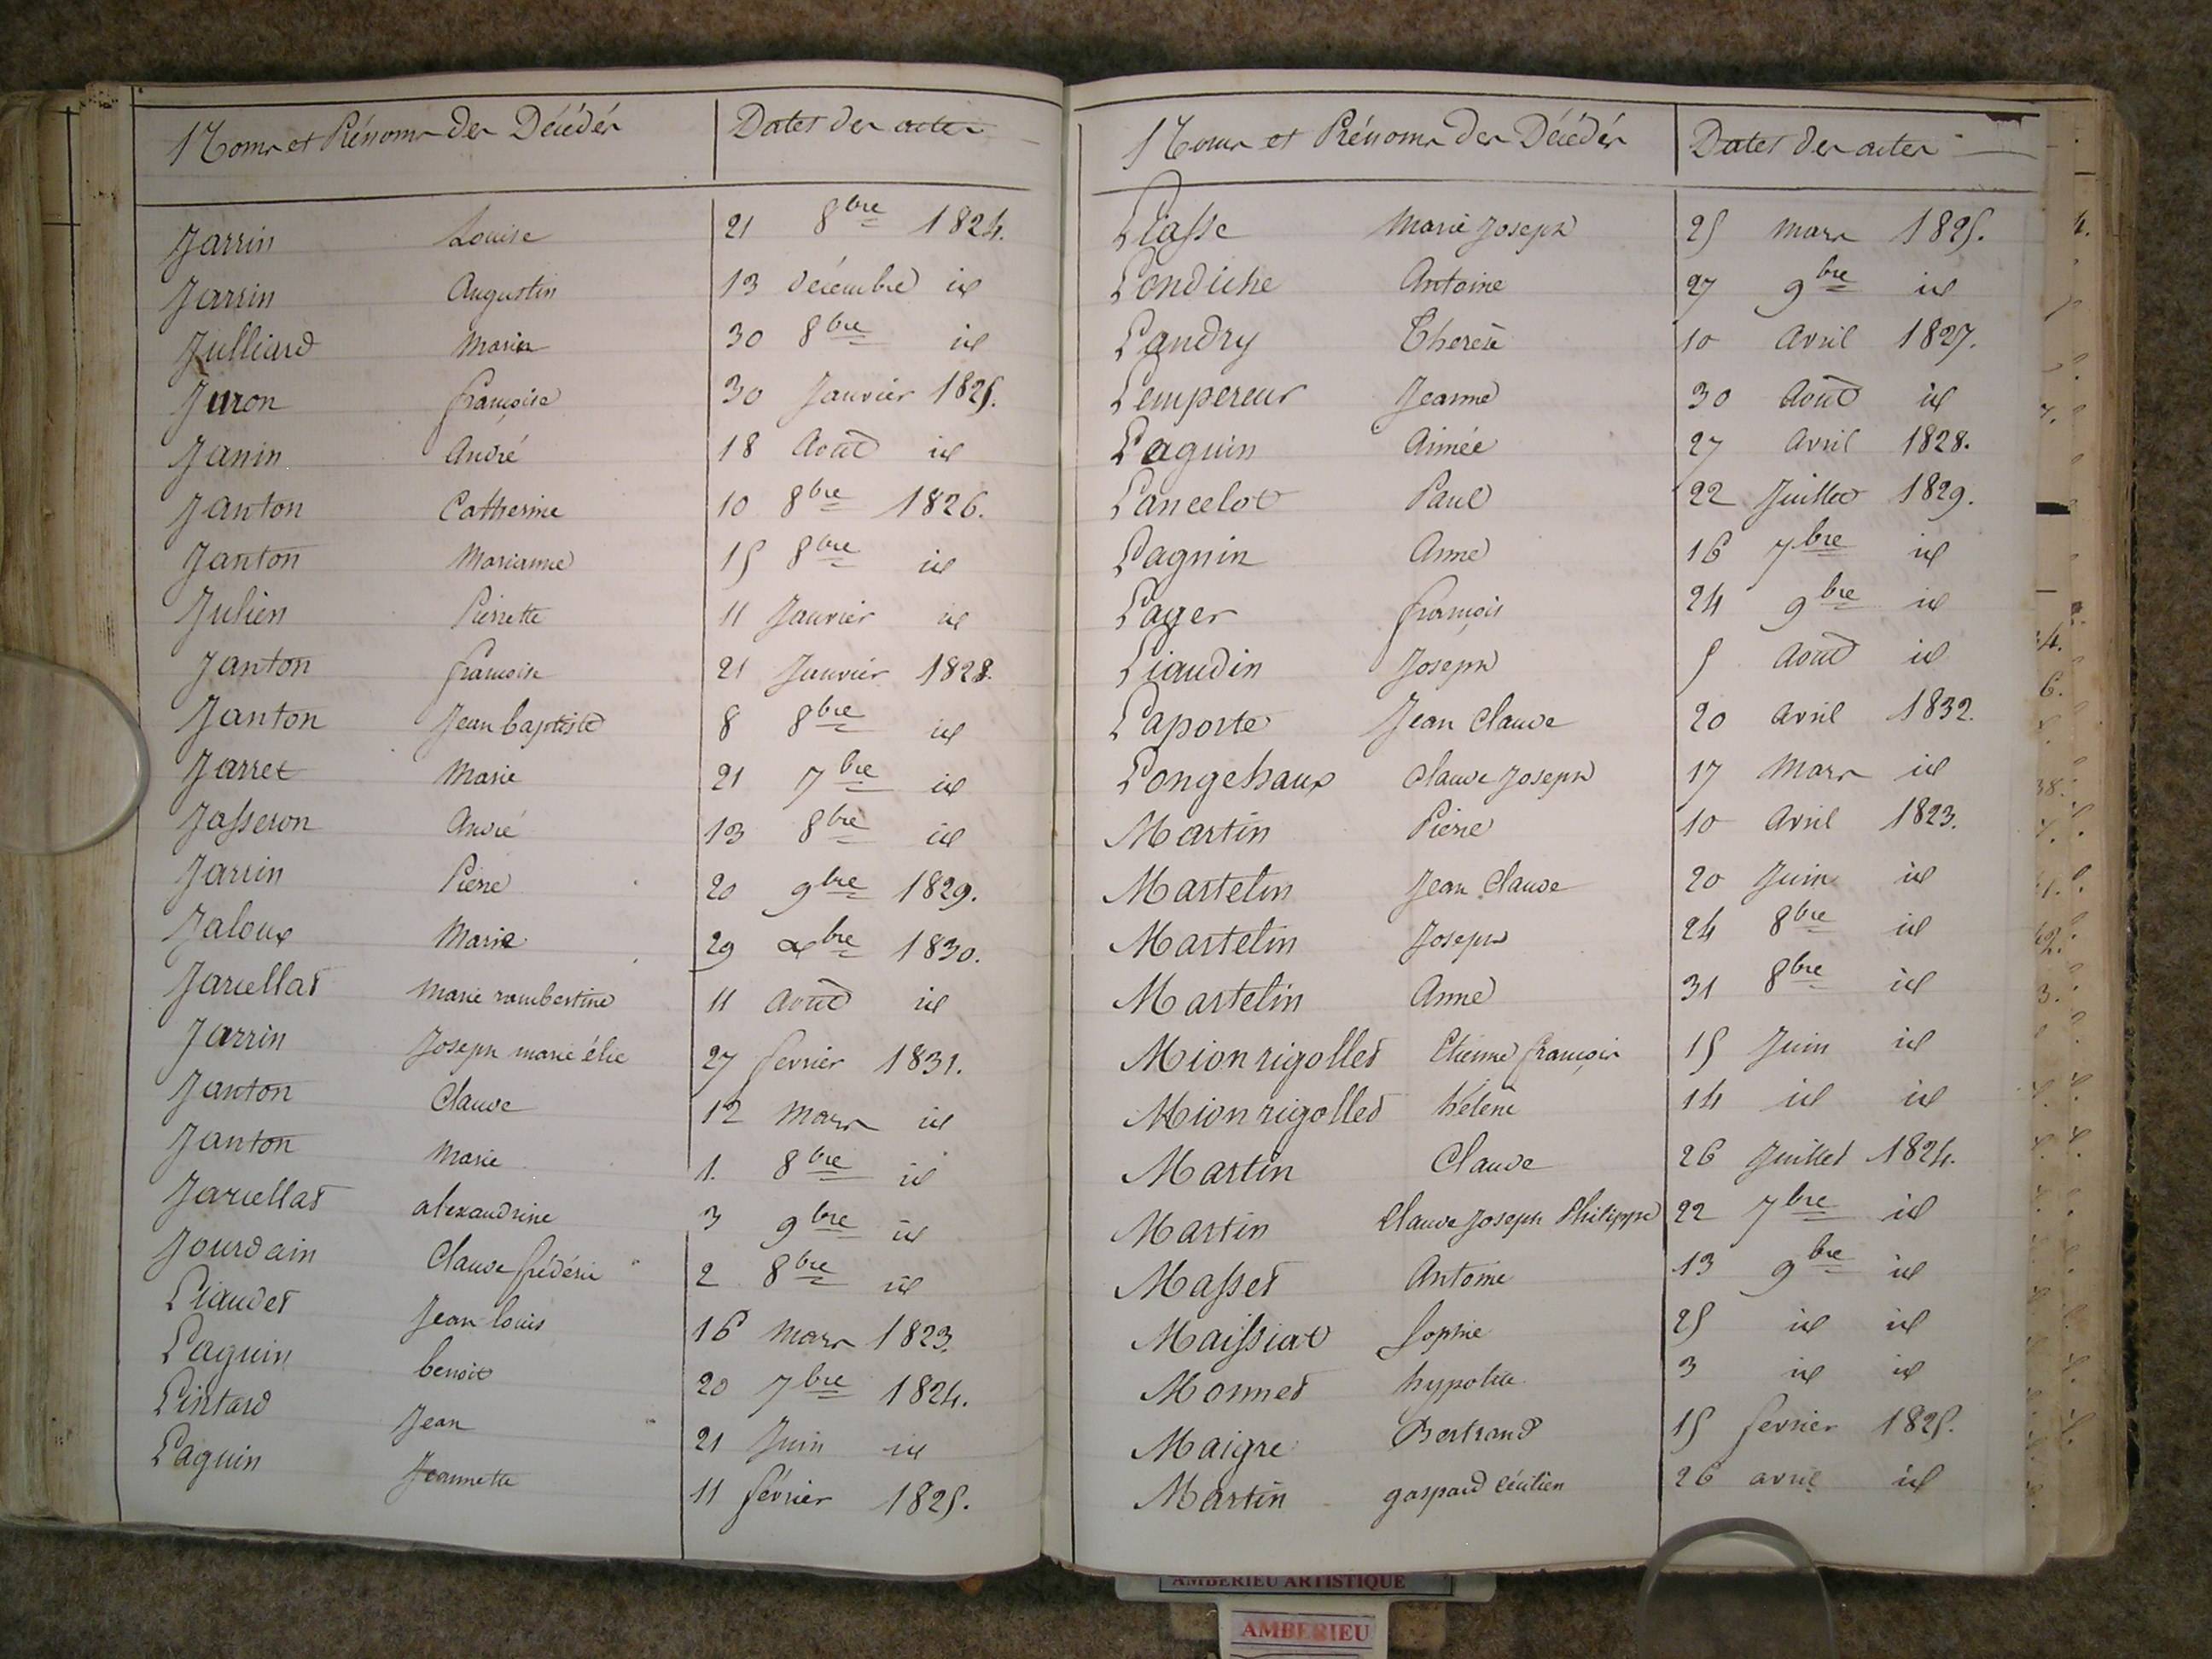 Noms et Prénoms des Décédés Dates des actes
Jarrin Louise 21 8bre 1824.
Jarrin Augustin 13 décembre id
Julliard Marie 30 8bre id
Juron françoise 30 Janvier 1825.
Janin André 18 Août id
Janton Catherine 10 8bre 1826.
Janton Marianne 15 8bre id
Julien Pierrette 11 Janvier id
Janton françoise 21 Janvier 1828.
Janton Jean baptiste 8 8bre id
Jarret Marie 21 7bre id
Jasseron André 13 8bre id
Jarrin Pierre 20 9bre 1829.
Jaloux Marie 29 xbre 1830.
Jarcellat Marie rambertine 11 Août id
Jarrin Joseph marie élie 27 fevrier 1831.
Janton Claude 12 Mars id
Janton Marie 1. 8bre id
Jarcellat alexandrine 3 9bre id
Jourdain Claude frédéric 2 8bre id
Liaudet Jean louis 16 Mars 1823.
Laguin benoit 20 7bre 1824.
Lintard Jean 21 Juin id
Laguin Jeannette 11 février 1825.
Noms et Prénoms des Décédés Dates des actes
Liasse Marie Joseph 25 Mars 1825.
Londiche Antoine 27 9bre id
Landry Therèse 10 Avril 1827.
Lempereur Jeanne 30 Août id
Laguin Aimée 27 Avril 1828.
Lancelot Paul 22 Juillet 1829.
Lagnin Anne 16 7bre id
Lager françois 24 9bre id
Liaudin Joseph 5 Août id
Laporte Jean Claude 20 Avril 1832.
Longchaux Claude Joseph 17 Mars id
Martin Pierre 10 Avril 1823.
Martelin Jean Claude 20 Juin id
Martelin Joseph 24 8bre id
Martelin Anne 31 8bre id
Mion rigollet Etienne françois 15 Juin id
Mion rigollet hélène 14 id id
Martin Claude 26 Juillet 1824.
Martin Claude Joseph Philippe 22 7bre id
Masset Antoine 13 9bre id
Maissiat Sophie 25 id id
Monnet hypolite 3 id id
Maigre Bertrand 15 fevrier 1825.
Martin gaspard Cécilien 26 avril id
AMBERIEU ARTISTIQUE
AMBERIEU